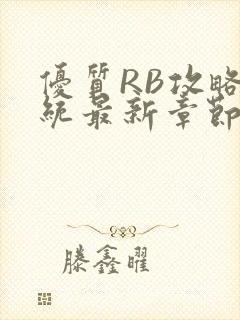 優質RB攻略
統最新章節
滕鑫曜